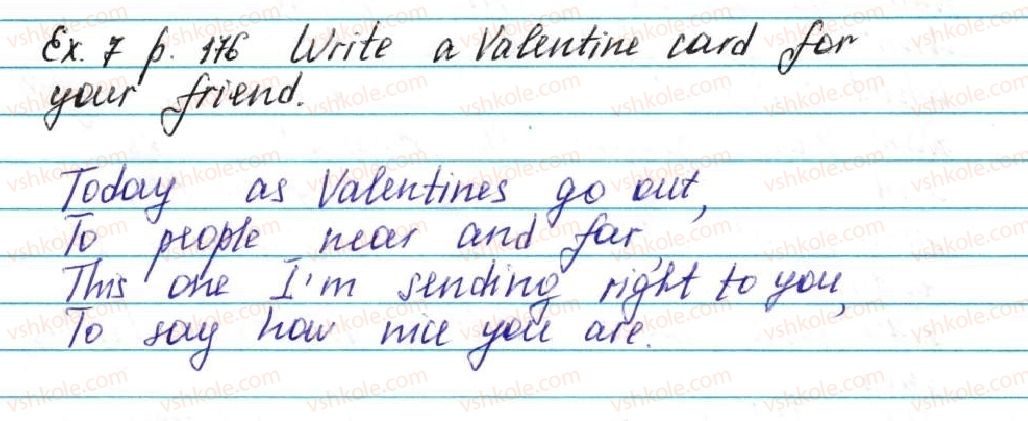 Ex. 7 p. 176 Write a Valentine card for
your friend.
Today as Valentines go out,
To people near and far,
This one I'm sending right to you,
To say how nice you are.